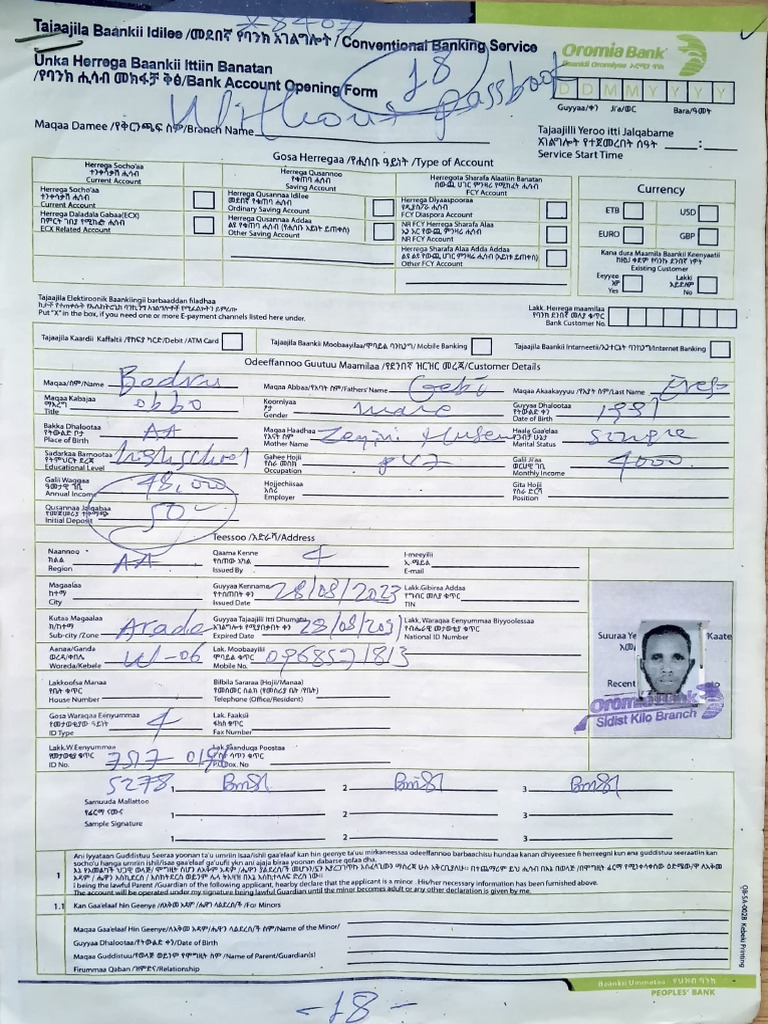 *8407
Tajaajila Baankii Idilee /መደበኛ የባንክ አገልግሎት / Conventional Banking Service
Unka Herrega Baankii Ittiin Banatan
/የባንክ ሒሳብ መክፈቻ ቅፅ/Bank Account Opening Form
18
Without passbook
Oromia Bank
Baankii Oromiyaa
D D M M Y Y Y Y
Guyyaa/ቀን Ji'a/ወር Bara/ዓመት
Maqaa Damee /የቅርንጫፍ ስም/Branch Name
Tajaajilli Yeroo itti Jalqabame
አገልግሎት የተጀመረበት ሰዓት
Service Start Time
Gosa Herregaa /የሒሳቡ ዓይነት /Type of Account
Herrega Socho'aa
ተንቀሳቃሽ ሒሳብ
Current Account
Herrega Qusannoo
የቁጠባ ሒሳብ
Saving Account
Herregota Sharafa Alaatiin Banatan
በውጪ ሀገር ምንዛሪ የሚከፈት ሒሳብ
FCY Account
Currency
Herrega Socho'aa
ተንቀሳቃሽ ሒሳብ
Current Account
Herrega Qusannaa Idilee
መደበኛ የቁጠባ ሒሳብ
Ordinary Saving Account
Herrega Diyaaspooraa
የዲያስፖራ ሒሳብ
FCY Diaspora Account
ETB USD
Herrega Daladala Gabaa(ECX)
በምርት ገበያ የሚሰራ ሒሳብ
ECX Related Account
Herrega Qusannaa Addaa
ልዩ የቁጠባ ሒሳብ (የሒሳቡ አይነት ይጠቀስ)
Other Saving Account
NR FCY Herrega Sharafa Alaa
NR FCY Account
EURO GBP
Herrega Sharafa Alaa Adda Addaa
ልዩ ልዩ የውጪ ሀገር ምንዛሪ ሒሳብ (አይነቱ ይጠቀስ)
Other FCY Account
Kana dura Maamila Baankii Keenyaatii
ከዚህ ቀደም የባንኩ ደንበኛ ነዎት
Existing Customer
Eeyyee Lakki
አዎ አይደለም
Yes No
Tajaajila Elektiroonik Baankiingii barbaaddan filadhaa
Put "X" in the box, if you need one or more E-payment channels listed here under.
Lakk. Herrega maamilaa
የባንክ ደንበኛ ቁጥር
Bank Customer No.
Tajaajila Kaardii Kaffaltii /የክፍያ ካርድ/Debit /ATM Card
Tajaajila Baankii Moobaayilaa/ሞባይል ባንኪንግ/ Mobile Banking
Tajaajila Baankii Intarneetii/ኢንተርኔት ባንኪንግ/Internet Banking
Odeeffannoo Guutuu Maamilaa /የደንበኛ ዝርዝር መረጃ/Customer Details
Maqaa/ስም/Name Bedru
Maqaa Abbaa/የአባት ስም/Fathers' Name
Maqaa Akaakayyuu /የአያት ስም/Last Name
Maqaa Kabajaa
ማእረግ
Title obbo
Koorniyaa
ፆታ
Gender male
Guyyaa Dhalootaa
የትውልድ ቀን
Date of Birth 1991
Bakka Dhalootaa
የትውልድ ቦታ
Place of Birth AA
Maqaa Haadhaa
የእናት ስም
Mother Name
Haala Gaa'elaa
የጋብቻ ሁኔታ
Marital Status single
Sadarkaa Barnootaa
የትምህርት ደረጃ
Educational Level highschool
Gahee Hojii
የስራ መስክ
Occupation
Galii Ji'aa
ወርሃዊ ገቢ
Monthly Income 4000
Galii Waggaa
ዓመታዊ ገቢ
Annual Income 48,000
Hojjechiisaa
አሰሪ
Employer
Gita Hojii
የስራ ድርሻ
Position
Qusannaa Jalqabaa
Initial Deposit 50-
Teessoo /አድራሻ/Address
Naannoo
ክልል
Region AA
Qaama Kenne
የሰጠው አካል
Issued By 4
I-meeyilii
ኢ.ሜይል
E-mail
Magaalaa
ከተማ
City
Guyyaa Kenname
የተሰጠበት ቀን
Issued Date 28/08/2023
Lakk.Gibiraa Addaa
የግብር መለያ ቁጥር
TIN
Kutaa Magaalaa
ክ/ከተማ
Sub-city /Zone Arada
Guyyaa Tajaajili itti Dhumatu
አገልግሎቱ የሚያበቃበት ቀን
Expired Date
Lakk. Waraqaa Eenyummaa Biyyoolessaa
የብሔራዊ መታወቂያ ቁጥር
National ID Number
Aanaa/Ganda
ወረዳ/ቀበሌ
Woreda/Kebele W-06
Lak. Moobaayilii
ሞባይል ቁጥር
Mobile No. 0968521813
Suuraa Ye Kaate
Recent
Oromia Bank
Sidist Kilo Branch
Lakkoofsa Manaa
የቤት ቁጥር
House Number
Bilbila Sararaa (Hojii/Manaa)
የመስመር ስልክ (የመስሪያ ቤት /የቤት)
Telephone (Office/Resident)
Gosa Waraqaa Eenyummaa
የመታወቂያው ዓይነት
ID Type 4
Lak. Faaksii
ፋክስ ቁጥር
Fax Number
Lakk.W.Eenyummaa
የመታወቂያ ቁጥር
ID No.
Lak.Saanduqa Poostaa
P.O.Box. No
5278
1 2 3
Samuuda Mallattoo
የፊርማ ናሙና
Sample Signature
1 2 3
1 2 3
1
Ani Iyyataan Guddistuu Seeraa yoonan ta'u umriin isaa/ishii gaa'elaaf kan hin geenye ta'uu mirkaneessaa odeeffannoo barbaachisu hundaa kanan dhiyeessee fi herreegni kun ana guddistuu seeraatiin kan
socho'u hanga umriin ishii/isaa gaa'elaaf ga'uufii ykn ani ajaja biraa yoonan dabarse qofaa dha.
I being the lawful Parent /Guardian of the following applicant, hearby declare that the applicant is a minor . His/her necessary information has been furnished above.
The account will be operated under my signature being lawful Guardian until the minor becomes adult or any other declaration is given by me.
1.1 Kan Gaa'elaaf Hin Geenye /ለአቅመ አዳም /ሔዋን ላልደረሰ/ች /For Minors
Maqaa Gaa'elaaf Hin Geenye/ለአቅመ አዳም/ሔዋን ላልደረሰ/ች ስም/Name of the Minor/
Guyyaa Dhalootaa/የትውልድ ቀን/Date of Birth
Maqaa Guddistuu/የወላጅ ወይንም የሞግዚት ስም /Name of Parent/Guardian(s)
Firuummaa Qaban /ዝምድና/Relationship
OB-SA-002B Kebela Printing
Baankii Ummataa የህዝብ ባንክ
PEOPLES' BANK
-18-